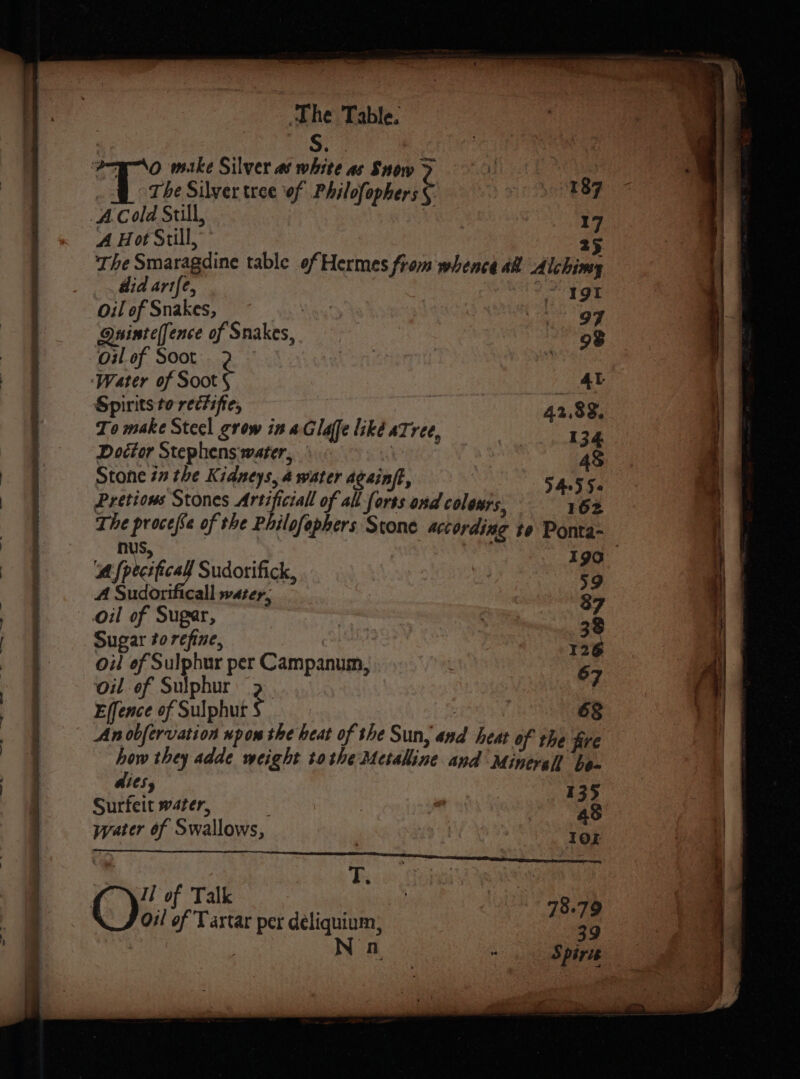 The Table.
S.
TO make Silver as white as Snow }
The Silver tree of Philosophers } 187
A Cold Still, 17
A Hot Still, 25
The Smaragdine table of Hermes from whence all Alchimy
did arise, 191
Oil of Snakes, 97
Quintessence of Snakes, 98
Oil of Soot }
Water of Soot } 41
Spirits to rectifie, 42.88.
To make Steel grow in a Glasse like a Tree, 134
Doctor Stephens water, 48
Stone in the Kidneys, a water against, 54.55.
Pretious Stones Artificiall of all sorts and colours, 162
The processe of the Philosophers Stone according to Ponta-
nus, 190
A specificall Sudorifick, 59
A Sudorificall water, 87
Oil of Sugar, 38
Sugar to refine, 126
Oil of Sulphur per Campanum, 67
Oil of Sulphur }
Essence of Sulphur } 68
An observation upon the heat of the Sun, and heat of the fire
how they adde weight to the Metalline and Minerall bo-
dies, 135
Surfeit water, 48
Water of Swallows, 101
T.
OIl of Talk 78.79
Oil of Tartar per deliquium, 39
N n Spirit